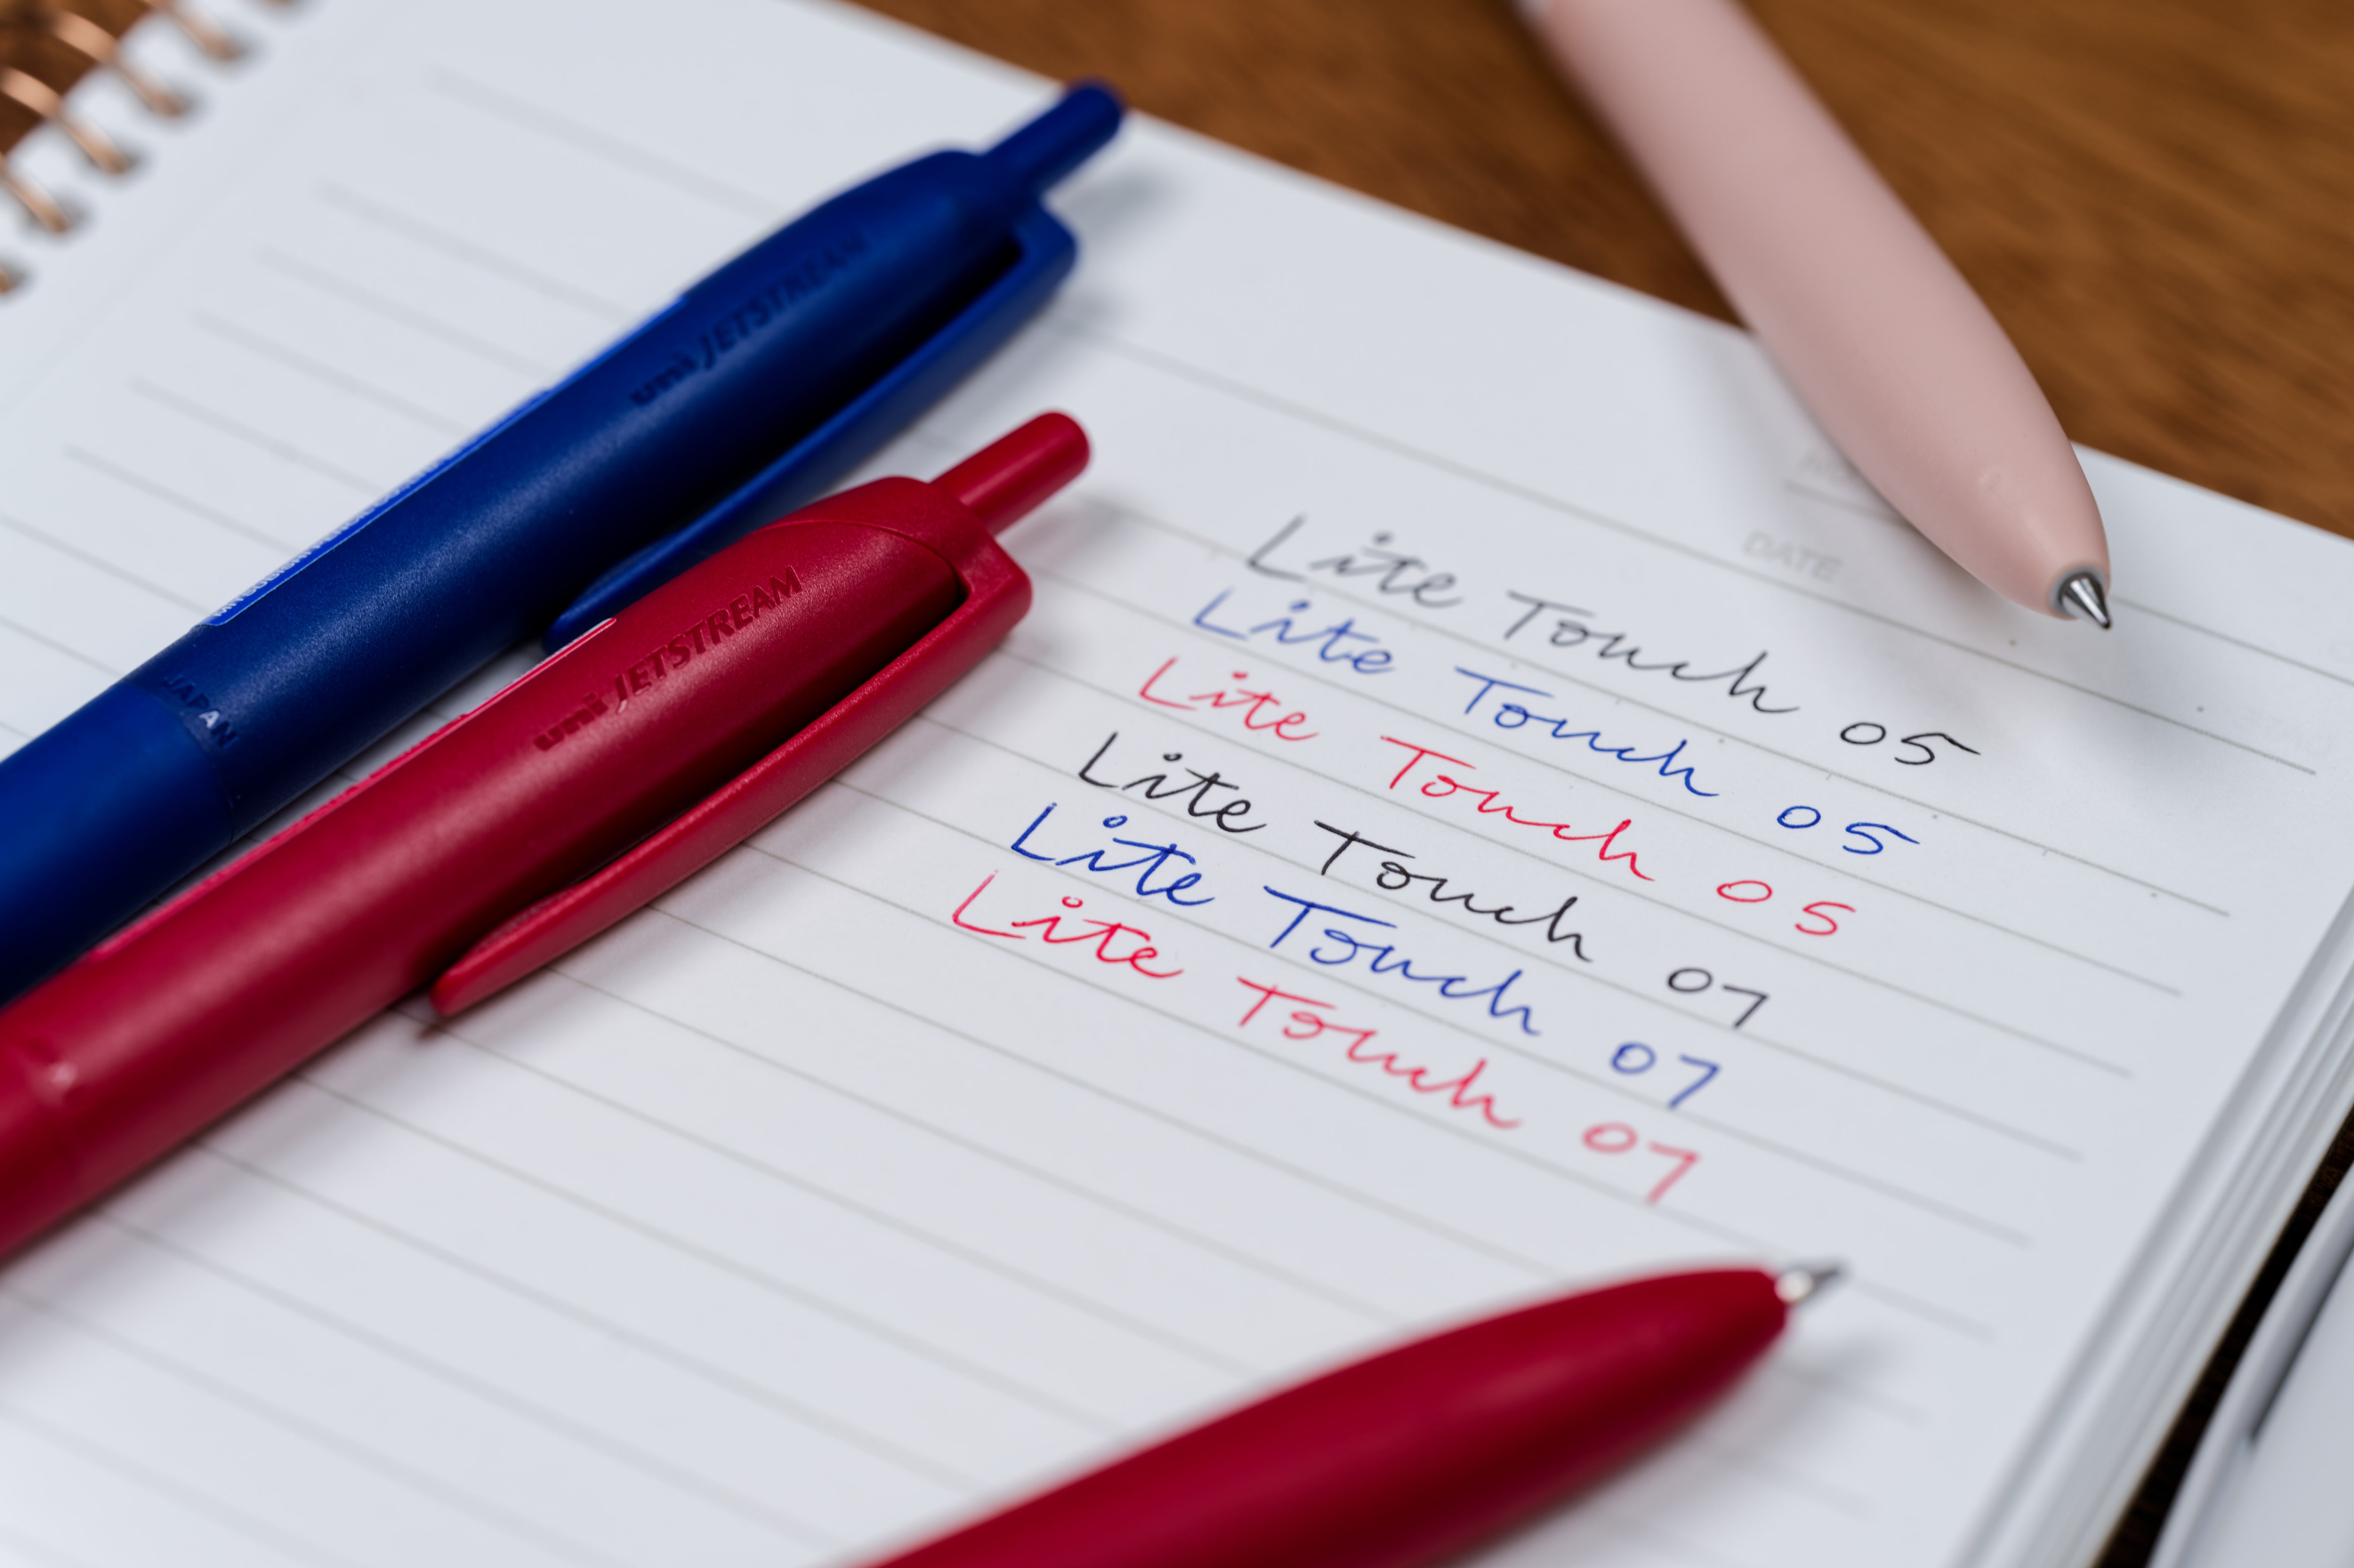 uni JETSTREAM
JAPAN
uni JETSTREAM
DATE
Lite Touch 05
Lite Touch 05
Lite Touch 05
Lite Touch 07
Lite Touch 07
Lite Touch 07